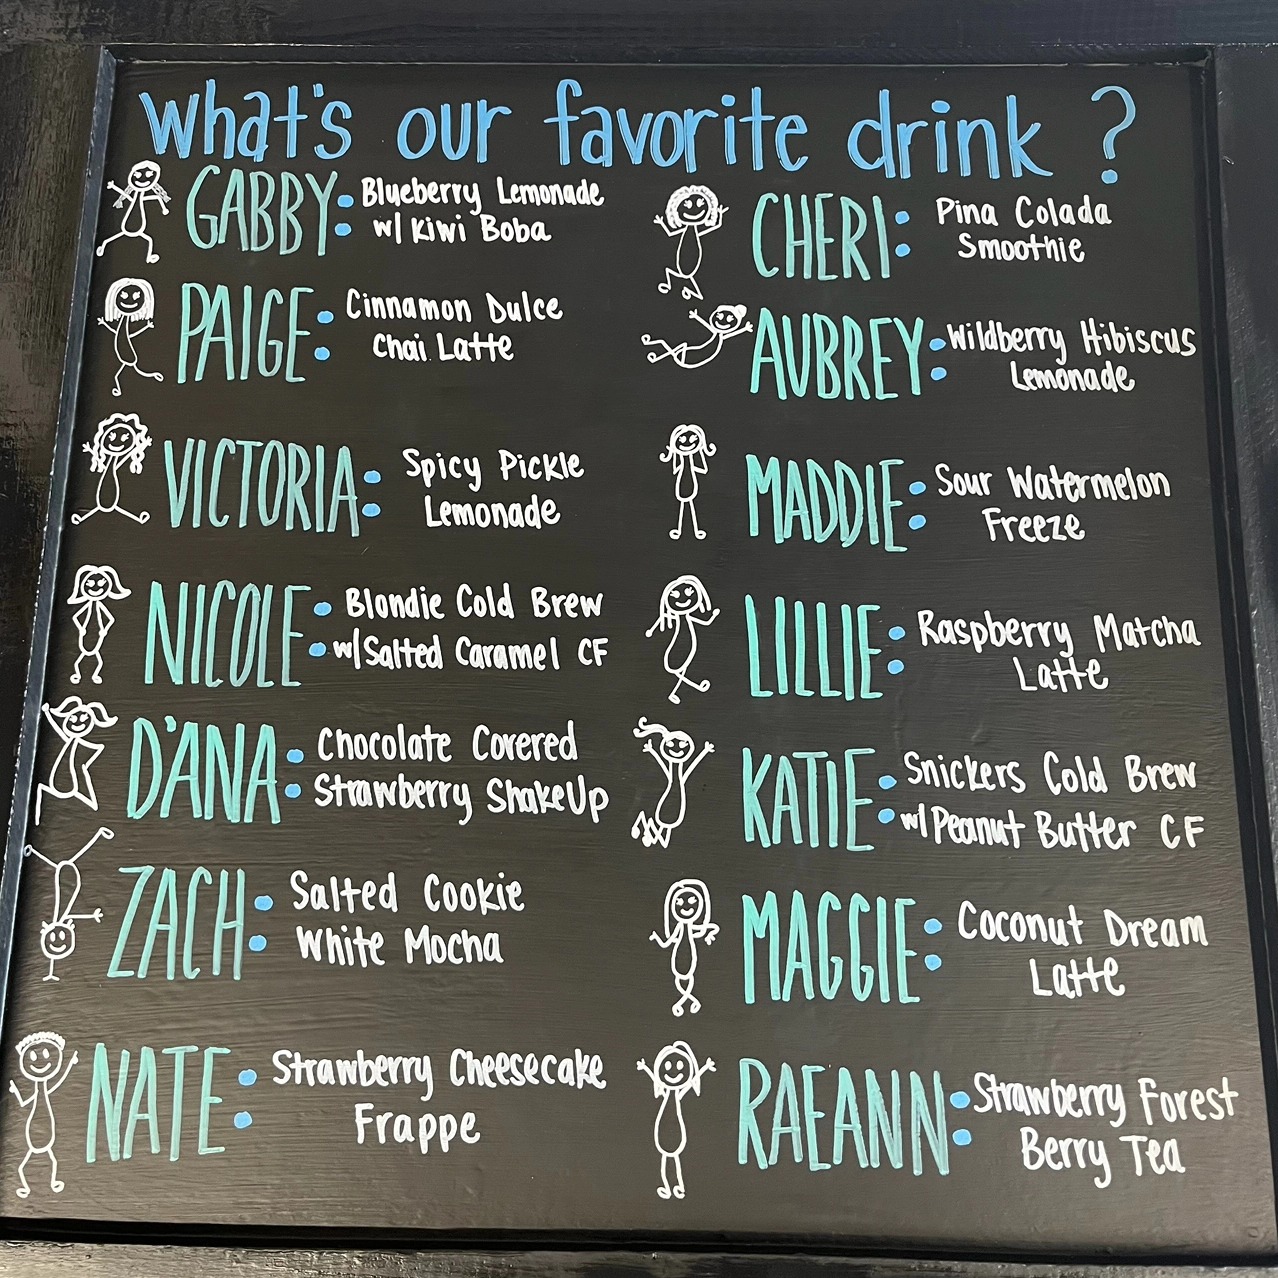 what's our favorite drink?
GABBY: Blueberry Lemonade
w/ Kiwi Boba
PAIGE: Cinnamon Dulce
Chai Latte
VICTORIA: Spicy Pickle
Lemonade
NICOLE: Blondie Cold Brew
w/ Salted Caramel CF
D'ANA: Chocolate Covered
Strawberry ShakeUp
ZACH: Salted Cookie
White Mocha
NATE: Strawberry Cheesecake
Frappe
CHERI: Pina Colada
Smoothie
AUBREY: Wildberry Hibiscus
Lemonade
MADDIE: Sour Watermelon
Freeze
LILLIE: Raspberry Matcha
Latte
KATIE: Snickers Cold Brew
w/ Peanut Butter CF
MAGGIE: Coconut Dream
Latte
RAEANN: Strawberry Forest
Berry Tea